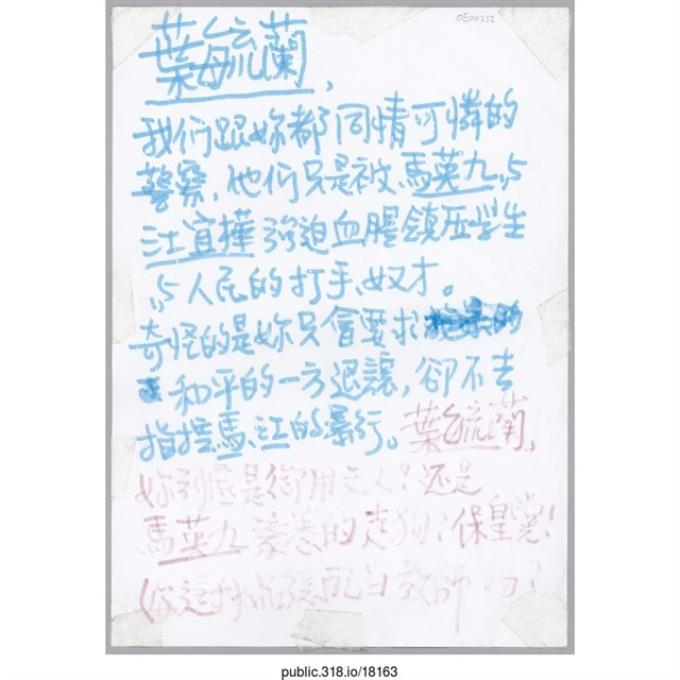 OE00232
葉毓蘭,
我們跟妳都同情可憐的
警察,他們只是被馬英九与
江宜樺強迫血腥鎮压学生
与人民的打手、奴才。
奇怪的是妳只會要求
和平的一方退讓,卻不去
指控馬、江的暴行。葉毓蘭,
妳到底是御用文人?还是
馬英九豢养的走狗?保皇黨!
你這种品德配当教师吗?
public.318.io/18163